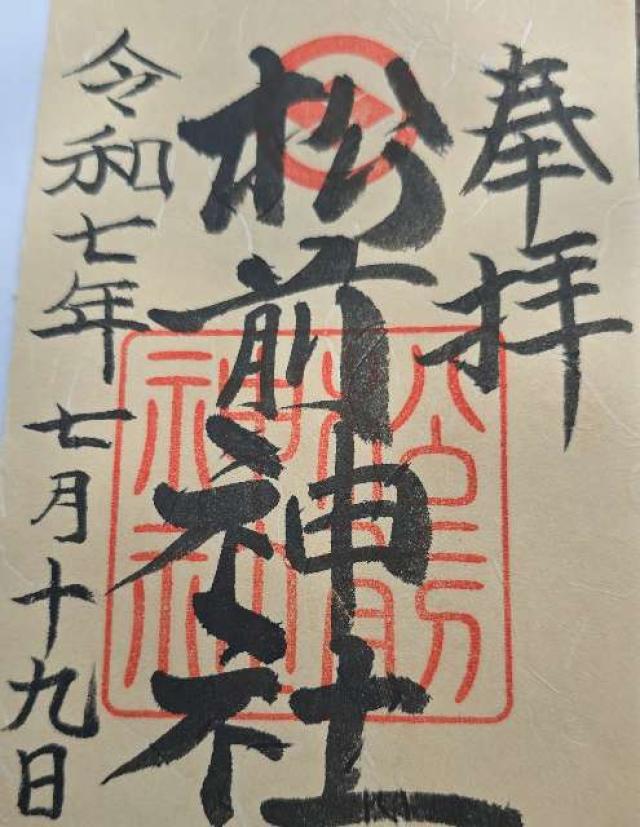 奉拝
松前神社
松前神社
令和七年七月十九日